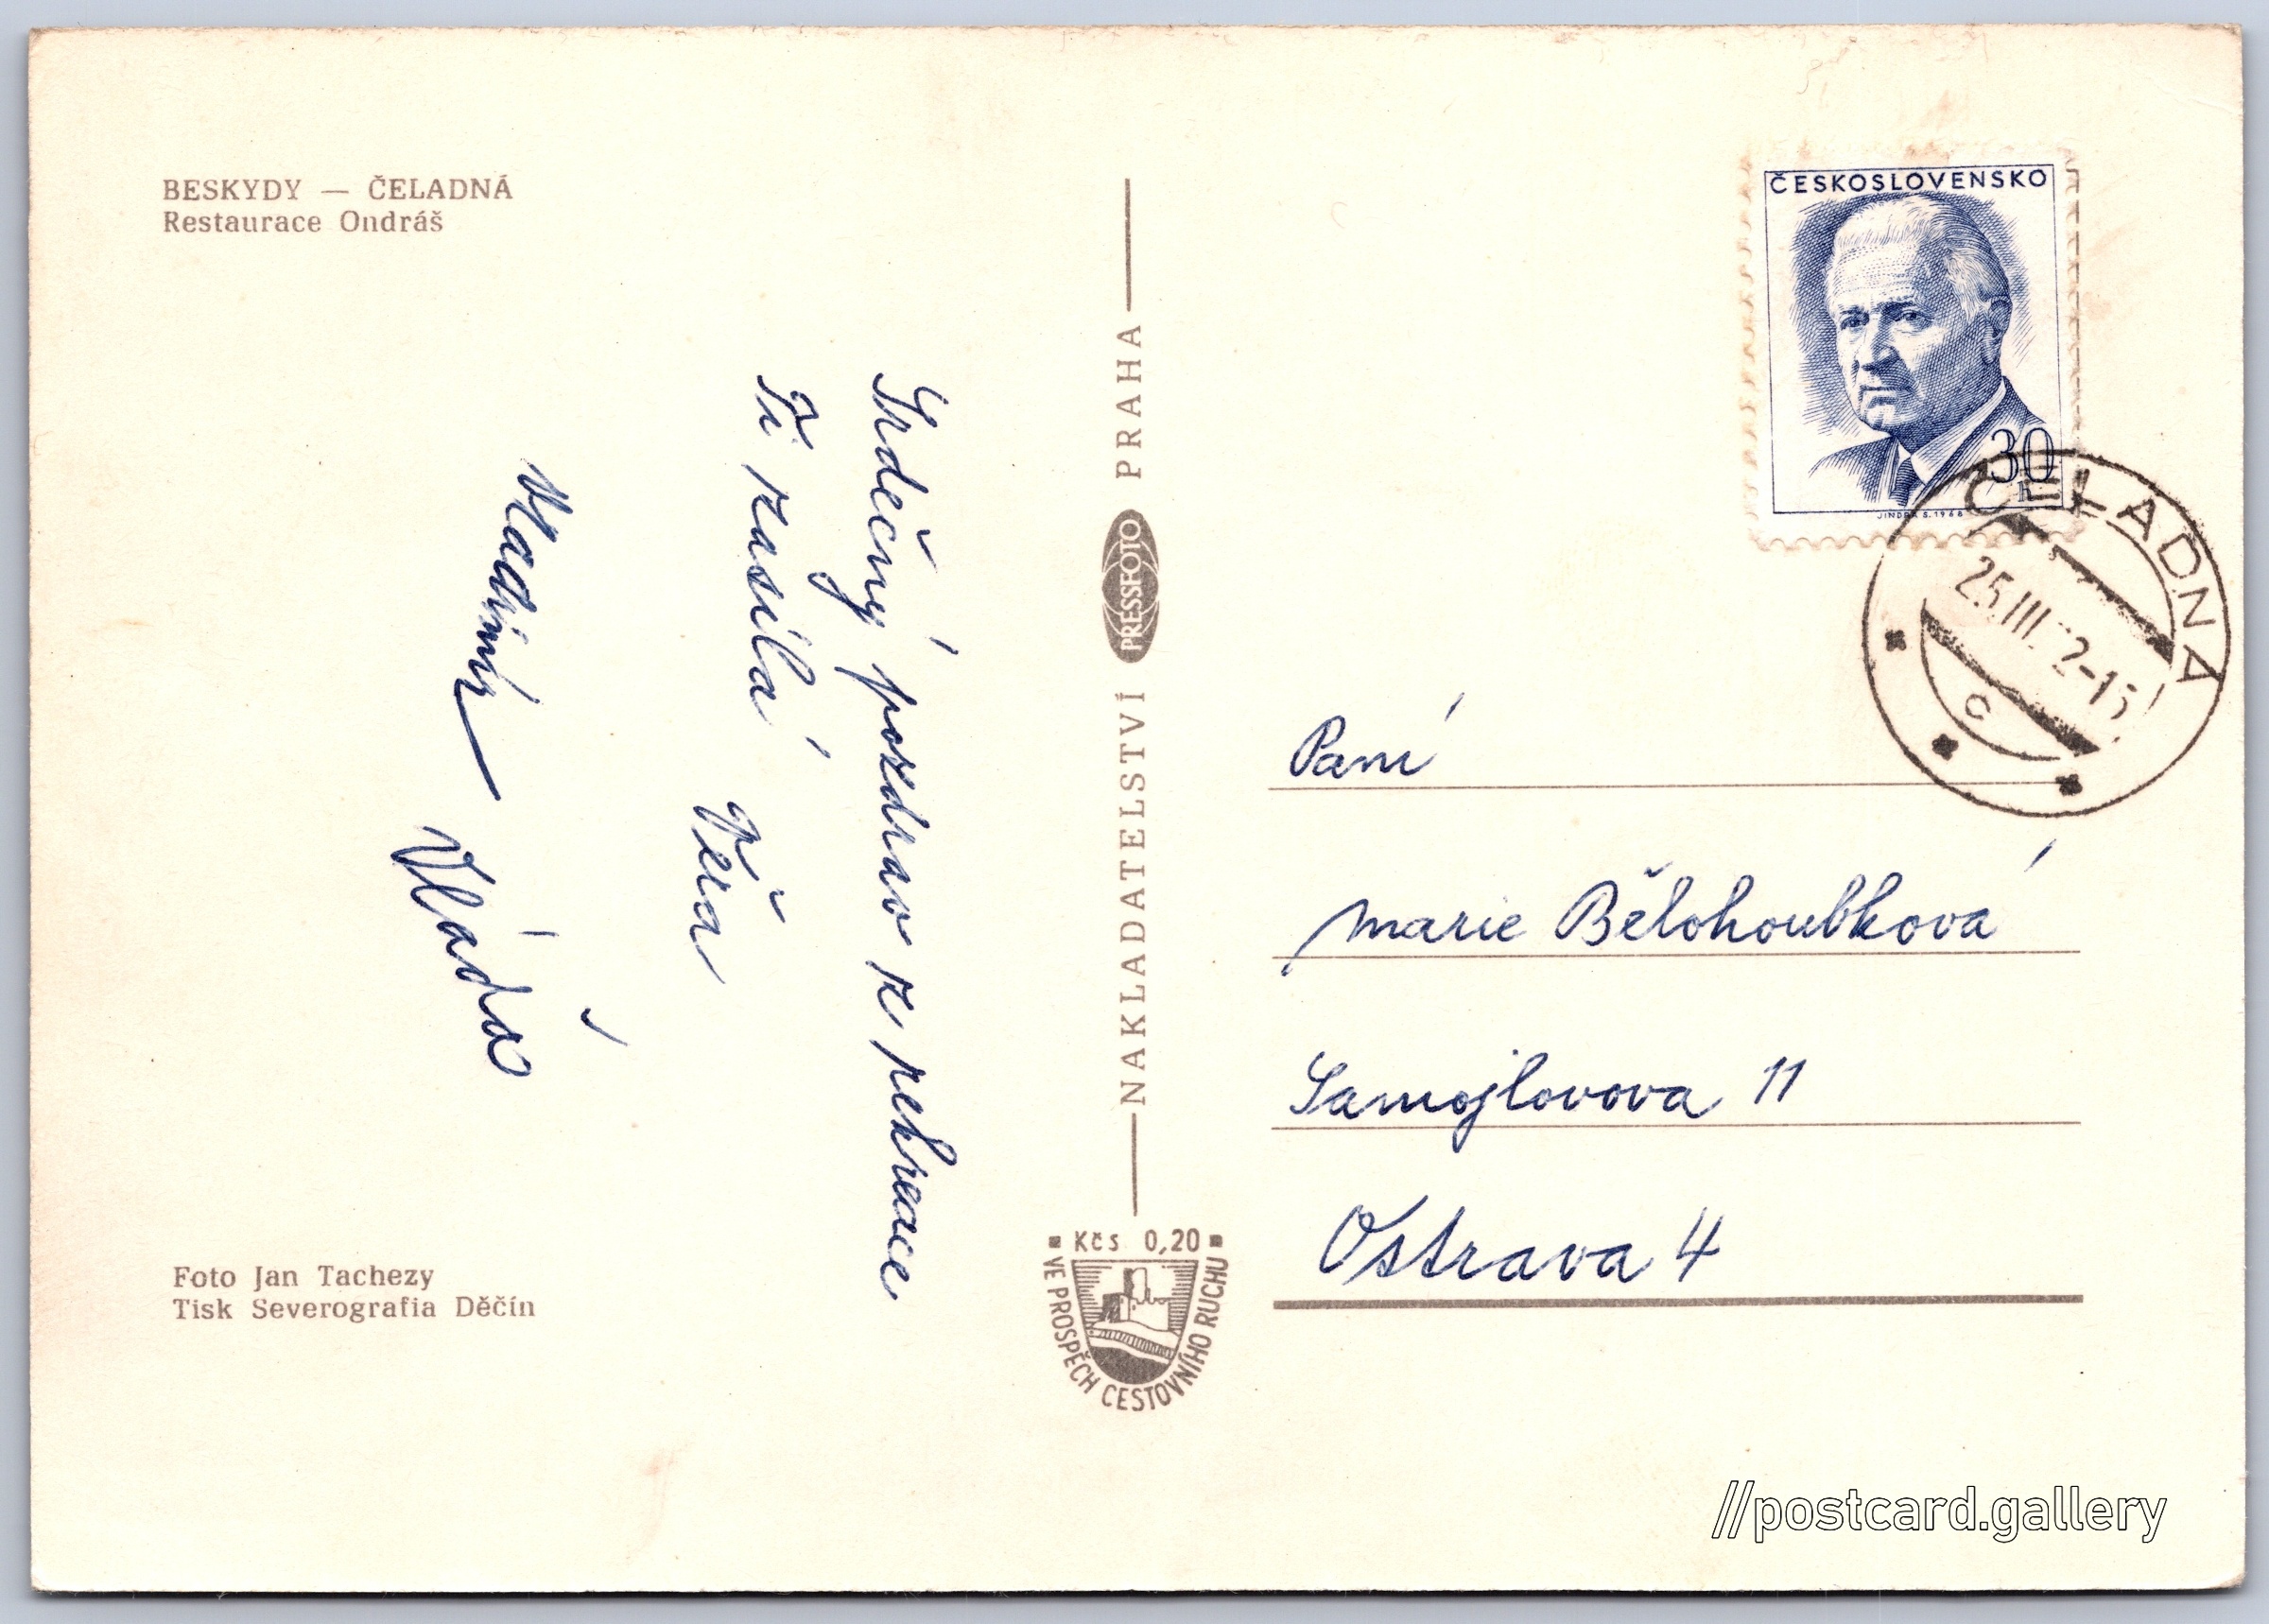 BESKYDY — ČELADNÁ
Restaurace Ondráš
Srdečný pozdrav z rekreace
Ti zasílá
Věra
Vladimír
Vláďa
Foto Jan Tachezy
Tisk Severografia Děčín
NAKLADATELSTVÍ PRESSFOTO PRAHA
Kčs 0,20
VE PROSPĚCH CESTOVNÍHO RUCHU
ČESKOSLOVENSKO
30
h
JINDRA S. 1968
ČELADNÁ
25.III.72-15
c
Paní
Marie Bělohoubková
Samojlovova 11
Ostrava 4
//postcard.gallery